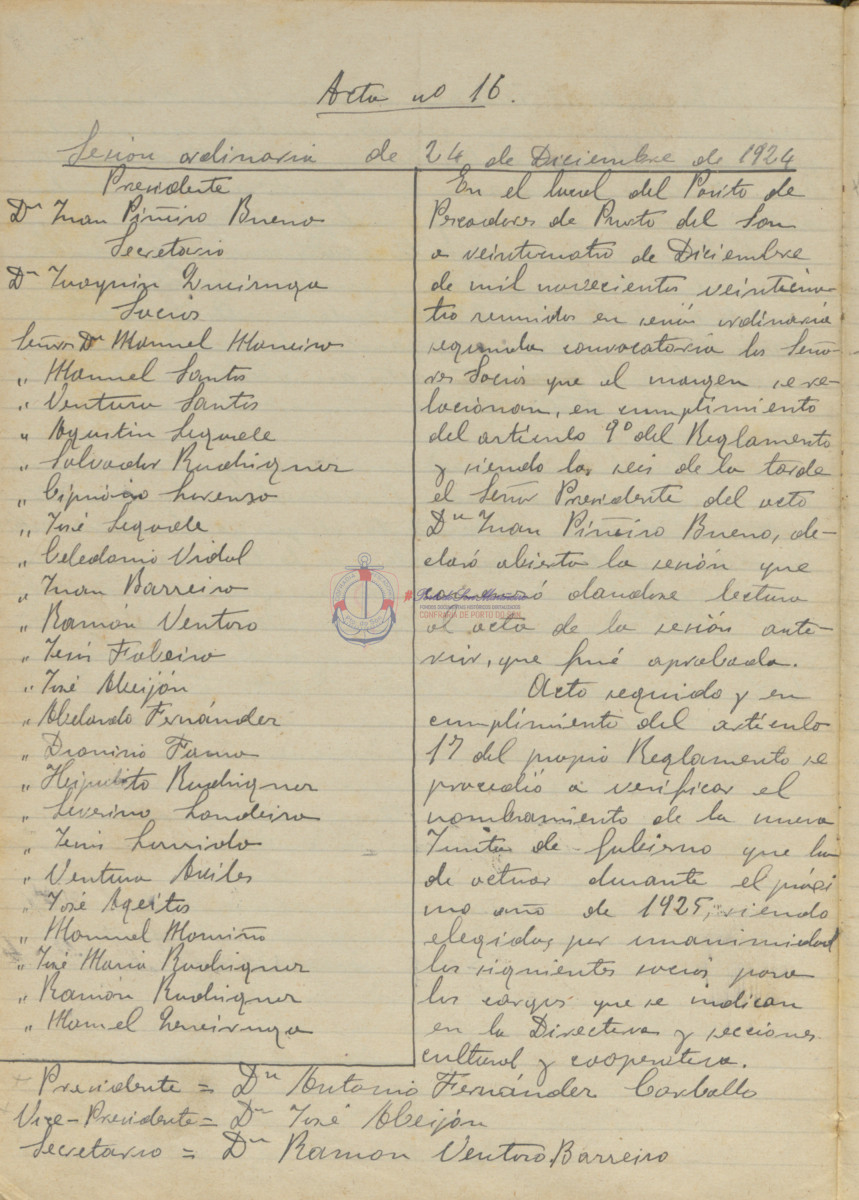 Acta nº 16.
Sesion ordinaria de 24 de Diciembre de 1924
Presidente
Dn Juan Piñeiro Bueno
Secretario
Dn Joaquin Queiruga
Socios
Señores Dn Manuel Maneiro
" Manuel Santos
" Ventura Santos
" Agustin Segade
" Salvador Rodriguez
" Cipriano Lorenzo
" José Segade
" Celedonio Vidal
" Juan Barreiro
" Ramón Ventoso
" Jesús
" José Abeijón
" Abelardo Fernández
" Dionisio
" Hipolito Rodriguez
" Severino Landeira
" Jesus
" Ventura Aviles
" José Ageitos
" Manuel Mariño
" José Maria Rodriguez
" Ramón Rodriguez
" Manuel Queiruga
En el local del Posito de
Pescadores de Puerto del Son
a veinticuatro de Diciembre
de mil novecientos veinticua-
tro reunidos en sesión ordinaria
segunda convocatoria los Seño-
res Socios que al margen se re-
lacionan, en cumplimiento
del artículo 9º del Reglamento
y siendo las seis de la tarde
el Señor Presidente del acto
Dn Juan Piñeiro Bueno, de-
claró abierta la sesión que
comenzó dandose lectura
al acta de la sesión ante-
rior, que fué aprobada.
Acto seguido y en
cumplimiento del artículo
17 del propio Reglamento se
procedió a verificar el
nombramiento de la nueva
Junta de Gobierno que ha
de actuar durante el próxi
mo año de 1925, siendo
elegidos por unanimidad
los siguientes socios para
los cargos que se indican
en la Directiva y secciones
cultural y cooperativa.
Presidente = Dn Antonio Fernández Carballo
Vice-Presidente = Dn José Abeijón
Secretario = Dn Ramon Ventoso Barreiro
CONFRARÍA DE PORTO DO SON